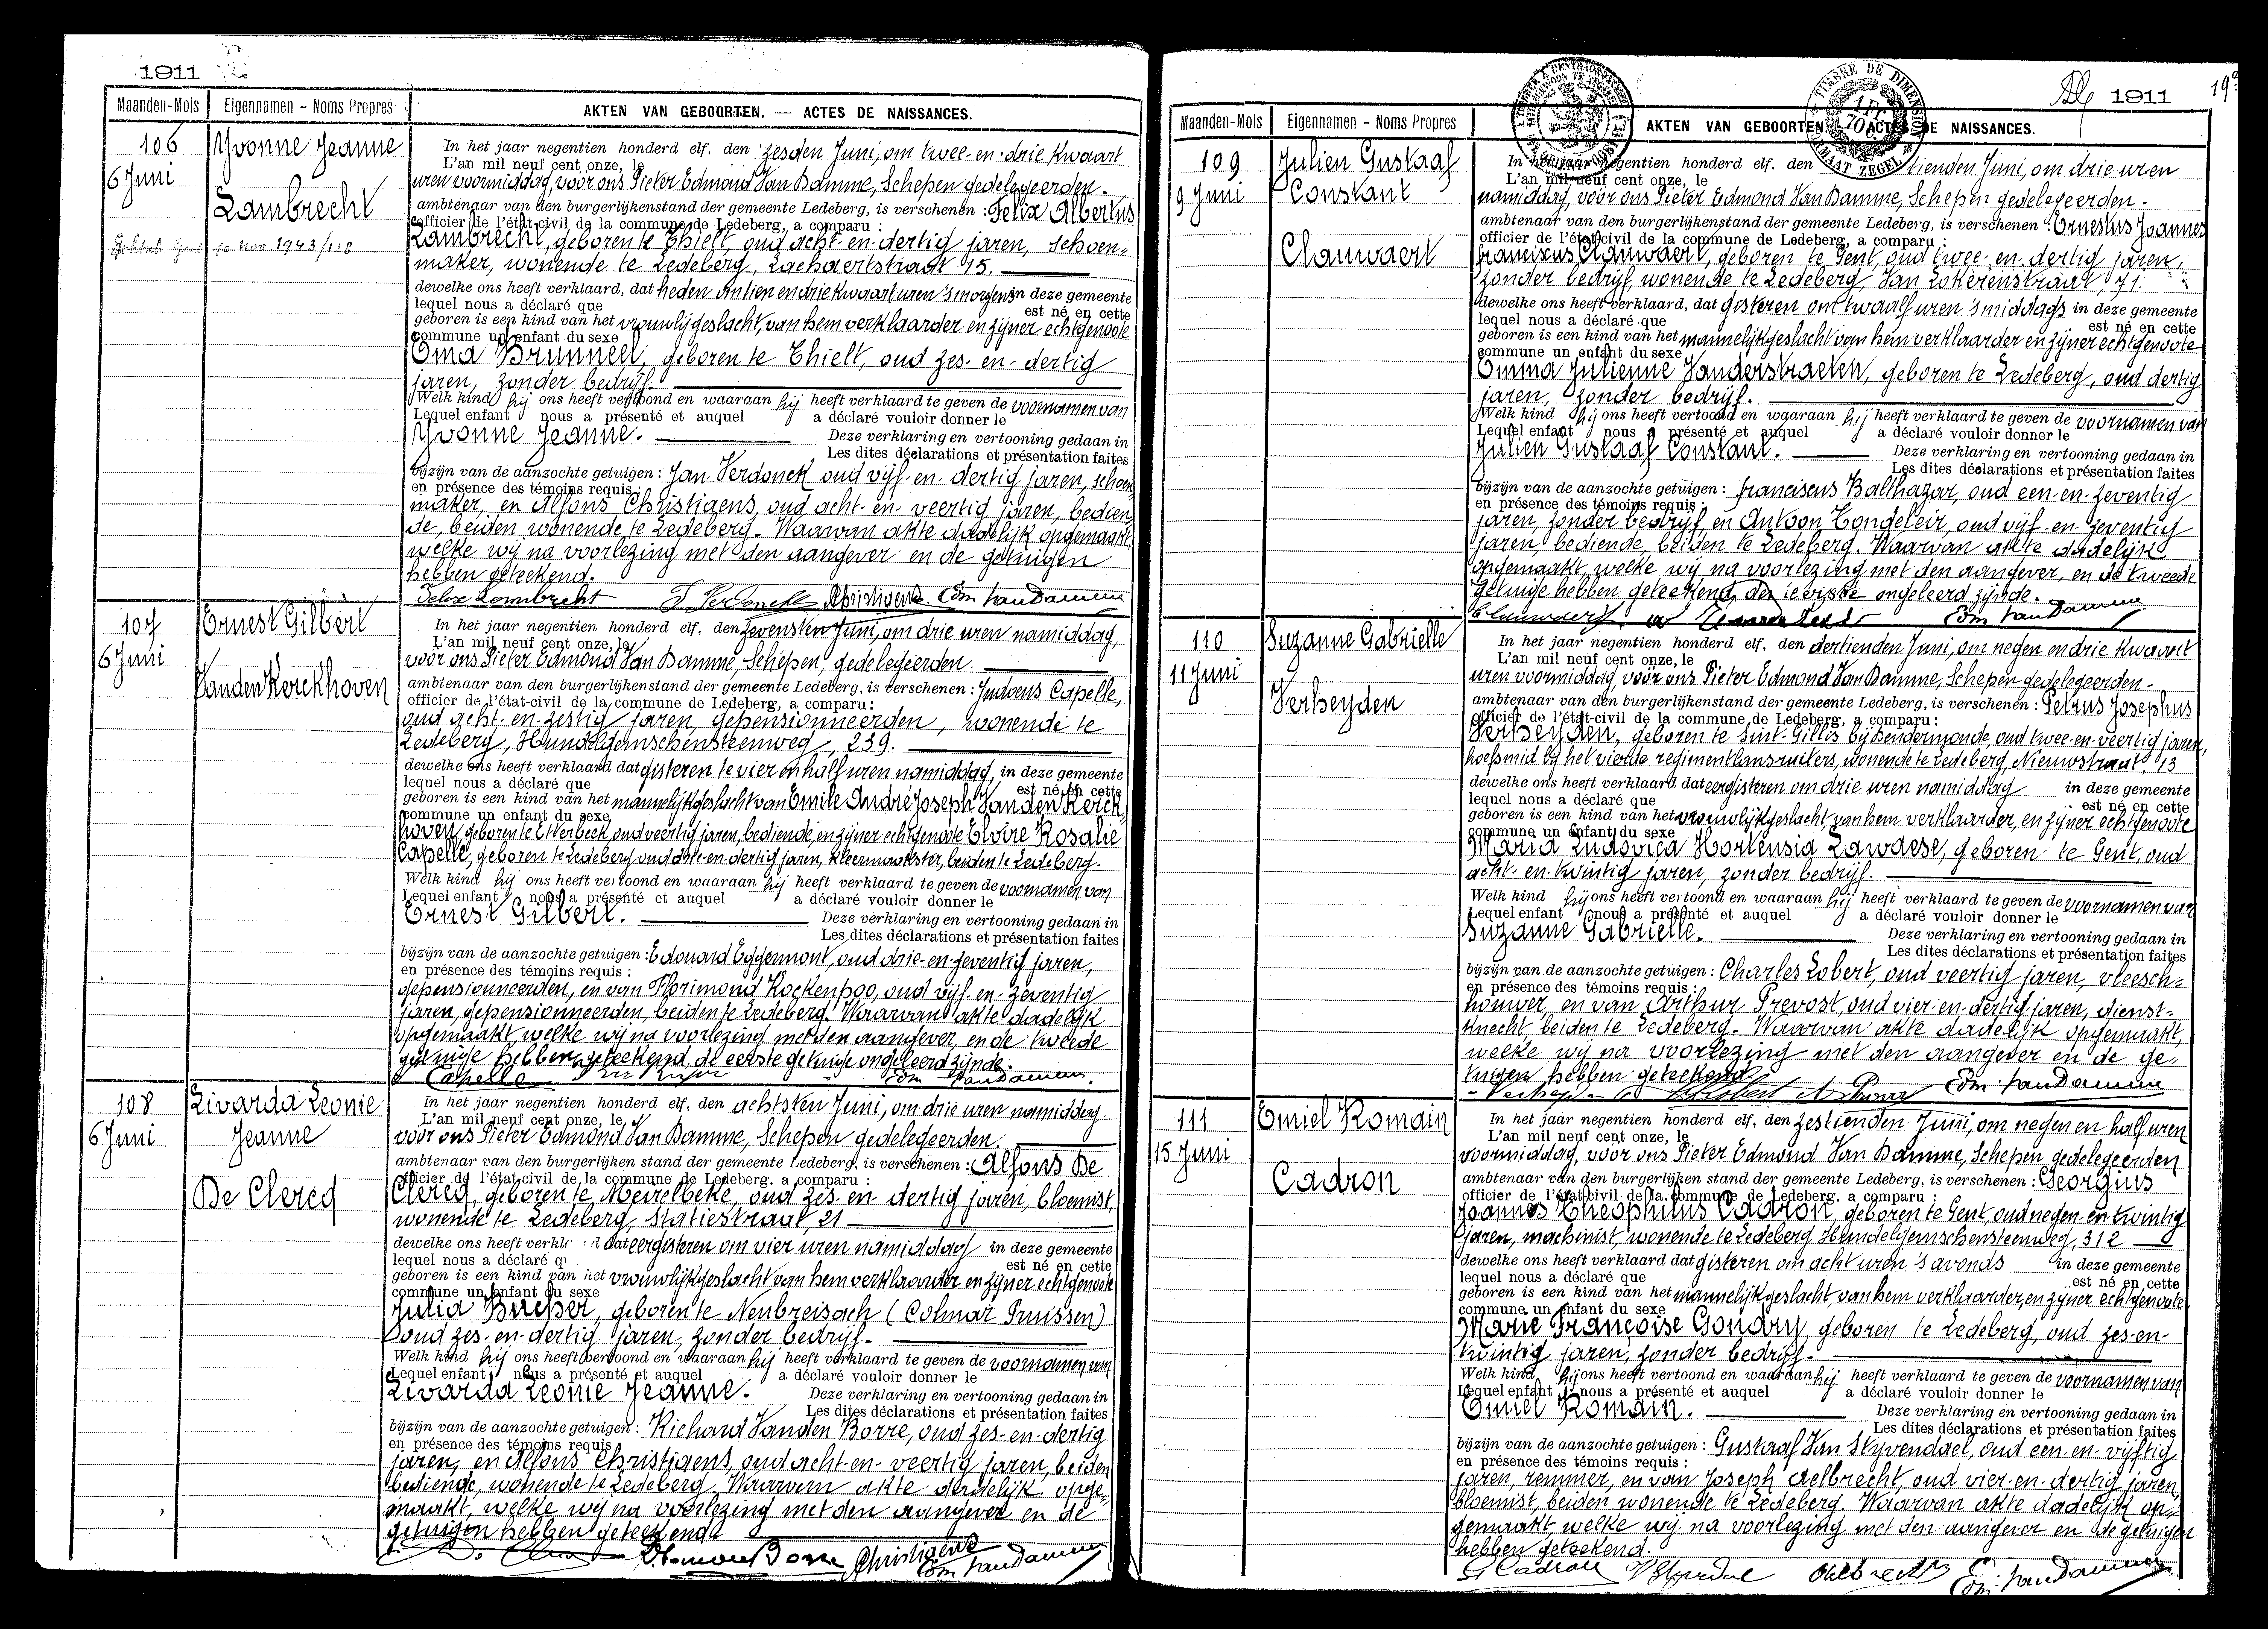 1911
Maanden-Mois Eigennamen – Noms Propres AKTEN VAN GEBOORTEN. — ACTES DE NAISSANCES.
106
6 Juni
Yvonne Jeanne
Lambrecht
10 nov. 1943/118
In het jaar negentien honderd elf. den zesden Juni, om twee-en-drie kwaart
L'an mil neuf cent onze, le
uren voormiddag, voor ons Pieter Edmond Van Damme, Schepen gedelegeerden.
ambtenaar van den burgerlijkenstand der gemeente Ledeberg, is verschenen : Felix Albertus
officier de l'état-civil de la commune de Ledeberg, a comparu :
Lambrecht, geboren te Thielt, oud acht-en-dertig jaren, schoen=
maker, wonende te Ledeberg, Lachaertstraat 15.
dewelke ons heeft verklaard, dat heden om tien en drie kwaart uren 's morgens in deze gemeente
lequel nous a déclaré que est né en cette
geboren is een kind van het vrouwlijkgeslacht, van hem verklaarder en zijner echtgenoote
commune un enfant du sexe
Ema Brunneel, geboren te Thielt, oud zes-en-dertig
jaren, zonder bedrijf.
Welk kind hij ons heeft vertoond en waaraan hij heeft verklaard te geven de voornamen van
Lequel enfant nous a présenté et auquel a déclaré vouloir donner le
Yvonne Jeanne. Deze verklaring en vertooning gedaan in
Les dites déclarations et présentation faites
bijzijn van de aanzochte getuigen : Jan Verdonck, oud vijf-en-dertig jaren, schoen=
en présence des témoins requis :
maker, en Alfons Christiaens, oud acht-en-veertig jaren, bedien=
de, beiden wonende te Ledeberg. Waarvan akte dadelijk opgemaakt,
welke wij na voorlezing met den aangever en de getuigen
hebben geteekend.
Felix Lambrecht Christiaens Edm. Van Damme
107
6 Juni
Ernest Gilbert
Vanden Kerckhoven
In het jaar negentien honderd elf, den zevensten Juni, om drie uren namiddag,
L'an mil neuf cent onze, le
voor ons Pieter Edmond Van Damme, Schepen, gedelegeerden.
ambtenaar van den burgerlijkenstand der gemeente Ledeberg, is verschenen : Judocus Capelle,
officier de l'état-civil de la commune de Ledeberg, a comparu :
oud acht-en-zestig jaren, gepensionneerden, wonende te
Ledeberg, Hundelgemschensteenweg, 239.
dewelke ons heeft verklaard dat gisteren te vier en half uren namiddag, in deze gemeente
lequel nous a déclaré que est né en cette
geboren is een kind van het mannelijkgeslacht van Emile André Joseph Vanden Kerck
commune un enfant du sexe
hoven, geboren te Etterbeek, oud veertig jaren, bediende, en zijner echtgenoote Elvire Rosalie
Capelle, geboren te Ledeberg oud drie-en-dertig jaren, kleermaakster, beiden te Ledeberg.
Welk kind hij ons heeft vertoond en waaraan hij heeft verklaard te geven de voornamen van
Lequel enfant nous a présenté et auquel a déclaré vouloir donner le
Ernest Gilbert. Deze verklaring en vertooning gedaan in
Les dites déclarations et présentation faites
bijzijn van de aanzochte getuigen : Edouard Eggermont, oud drie-en-zeventig jaren,
en présence des témoins requis :
gepensionneerden, en van Florimond Kockenpoo, oud vijf-en-zeventig
jaren, gepensionneerden, beiden te Ledeberg. Waarvan akte dadelijk
opgemaakt, welke wij na voorlezing met den aangever, en de tweede
getuige hebben geteekend, de eerste getuige ongeleerd zijnde.
Capelle Edm. Van Damme
108
6 Juni
Livarda Leonie
Jeanne
De Clercq
In het jaar negentien honderd elf, den achtsten Juni, om drie uren namiddag.
L'an mil neuf cent onze, le
voor ons Pieter Edmond Van Damme, Schepen gedelegeerden.
ambtenaar van den burgerlijken stand der gemeente Ledeberg, is verschenen : Alfons De
officier de l'état-civil de la commune de Ledeberg. a comparu :
Clercq, geboren te Meirelbeke, oud zes-en dertig jaren, bloemist,
wonende te Ledeberg, Statiestraat, 21
dewelke ons heeft verkl dat eergisteren om vier uren namiddag in deze gemeente
lequel nous a déclaré q est né en cette
geboren is een kind van het vrouwlijkgeslacht van hem verklaarder en zijner echtgenoote
commune un enfant du sexe
Julia Bucher, geboren te Neubreisach (Colmar Pruissen)
oud zes-en-dertig jaren, zonder bedrijf.
Welk kind hij ons heeft vertoond en waaraan hij heeft verklaard te geven de voornamen van
Lequel enfant nous a présenté et auquel a déclaré vouloir donner le
Livarda Leonie Jeanne. Deze verklaring en vertooning gedaan in
Les dites déclarations et présentation faites
bijzijn van de aanzochte getuigen : Richard Vanden Borre, oud zes-en-dertig
en présence des témoins requis :
jaren, en Alfons Christiaens, oud acht-en-veertig jaren, beiden
bediende, wonende te Ledeberg. Waarvan akte dadelijk opge-
maakt, welke wij na voorlezing met den aangever en de
getuigen hebben geteekend.
Christiaens Edm. Van Damme
1911 19
TIMBRE DE DIMENSION 1 FR. 70 C. FORMAAT ZEGEL
Maanden-Mois Eigennamen – Noms Propres AKTEN VAN GEBOORTEN ACTES DE NAISSANCES.
109
9 Juni
Julien Gustaaf
Constant
Clauwaert
In het jaar negentien honderd elf. den tienden Juni, om drie uren
L'an mil neuf cent onze, le
namiddag, voor ons Pieter Edmond Van Damme, Schepen gedelegeerden.
ambtenaar van den burgerlijkenstand der gemeente Ledeberg, is verschenen : Ernestus Joannes
officier de l'état-civil de la commune de Ledeberg, a comparu :
Franciscus Clauwaert, geboren te Gent, oud twee-en-dertig jaren,
zonder bedrijf, wonende te Ledeberg, Van Lokerenstraat, 71.
dewelke ons heeft verklaard, dat gisteren om twaalf uren 's middags in deze gemeente
lequel nous a déclaré que est né en cette
geboren is een kind van het mannelijkgeslacht van hem verklaarder en zijner echtgenoote
commune un enfant du sexe
Emma Julienne Vanderstraeten, geboren te Ledeberg, oud dertig
jaren, zonder bedrijf.
Welk kind hij ons heeft vertoond en waaraan hij heeft verklaard te geven de voornamen van
Lequel enfant nous a présenté et auquel a déclaré vouloir donner le
Julien Gustaaf Constant. Deze verklaring en vertooning gedaan in
Les dites déclarations et présentation faites
bijzijn van de aanzochte getuigen : Franciscus Balthazar, oud een-en-zeventig
en présence des témoins requis :
jaren, zonder bedrijf, en Antoon Tongeleir, oud vijf-en-zeventig
jaren, bediende, beiden te Ledeberg. Waarvan akte dadelijk
opgemaakt, welke wij na voorlezing met den aangever, en de tweede
getuige hebben geteekend, de eerste ongeleerd zijnde.
Clauwaert Edm. Van Damme
110
11 Juni
Suzanne Gabrielle
Verheyden
In het jaar negentien honderd elf, den dertienden Juni, om negen en drie kwaart
L'an mil neuf cent onze, le
uren voormiddag, voor ons Pieter Edmond Van Damme, Schepen gedelegeerden.
ambtenaar van den burgerlijkenstand der gemeente Ledeberg, is verschenen : Petrus Josephus
officier de l'état-civil de la commune de Ledeberg, a comparu :
Verheyden, geboren te Sint-Gillis bij Dendermonde oud twee-en-veertig jaren,
hoefsmid bij het vierde regiment lansruiters, wonende te Ledeberg, Nieuwstraat, 13
dewelke ons heeft verklaard dat eergisteren om drie uren namiddag in deze gemeente
lequel nous a déclaré que est né en cette
geboren is een kind van het vrouwlijkgeslacht van hem verklaarder, en zijner echtgenoote
commune un enfant du sexe
Maria Ludovica Hortensia Lawaese, geboren te Gent, oud
acht-en-twintig jaren, zonder bedrijf.
Welk kind hij ons heeft vertoond en waaraan hij heeft verklaard te geven de voornamen van
Lequel enfant nous a présenté et auquel a déclaré vouloir donner le
Suzanne Gabrielle. Deze verklaring en vertooning gedaan in
Les dites déclarations et présentation faites
bijzijn van de aanzochte getuigen : Charles Lobert, oud veertig jaren, vleesch=
en présence des témoins requis :
houwer, en van Arthur Prevost, oud vier-en-dertig jaren, dienst=
knecht, beiden te Ledeberg. Waarvan akte dadelijk opgemaakt,
welke wij na voorlezing met den aangever en de ge-
tuigen hebben geteekend.
Edm. Van Damme
111
15 Juni
Emiel Romain
Cadron
In het jaar negentien honderd elf, den zestienden Juni, om negen en half uren
L'an mil neuf cent onze, le
voormiddag, voor ons Pieter Edmond Van Damme, Schepen gedelegeerden
ambtenaar van den burgerlijken stand der gemeente Ledeberg, is verschenen : Georgius
officier de l'état-civil de la commune de Ledeberg. a comparu :
Joannes Theophilus Cadron, geboren te Gent, oud negen-en-twintig
jaren, machinist wonende te Ledeberg Hundelgemschensteenweg, 312
dewelke ons heeft verklaard dat gisteren om acht uren 's avonds in deze gemeente
lequel nous a déclaré que est né en cette
geboren is een kind van het mannelijkgeslacht, van hem verklaarder, en zijner echtgenoote
commune un enfant du sexe
Marie Françoise Gondry, geboren te Ledeberg, oud zes-en-
twintig jaren, zonder bedrijf.
Welk kind hij ons heeft vertoond en waaraan hij heeft verklaard te geven de voornamen van
Lequel enfant nous a présenté et auquel a déclaré vouloir donner le
Emiel Romain. Deze verklaring en vertooning gedaan in
Les dites déclarations et présentation faites
bijzijn van de aanzochte getuigen : Gustaaf Van Styvendael, oud een-en-vijftig
en présence des témoins requis :
jaren, remmer, en van Joseph Aelbrecht, oud vier-en-dertig jaren,
bloemist, beiden wonende te Ledeberg. Waarvan akte dadelijk op=
gemaakt welke wij na voorlezing met den aangever en de getuigen
hebben geteekend.
G Cadron Edm. Van Damme